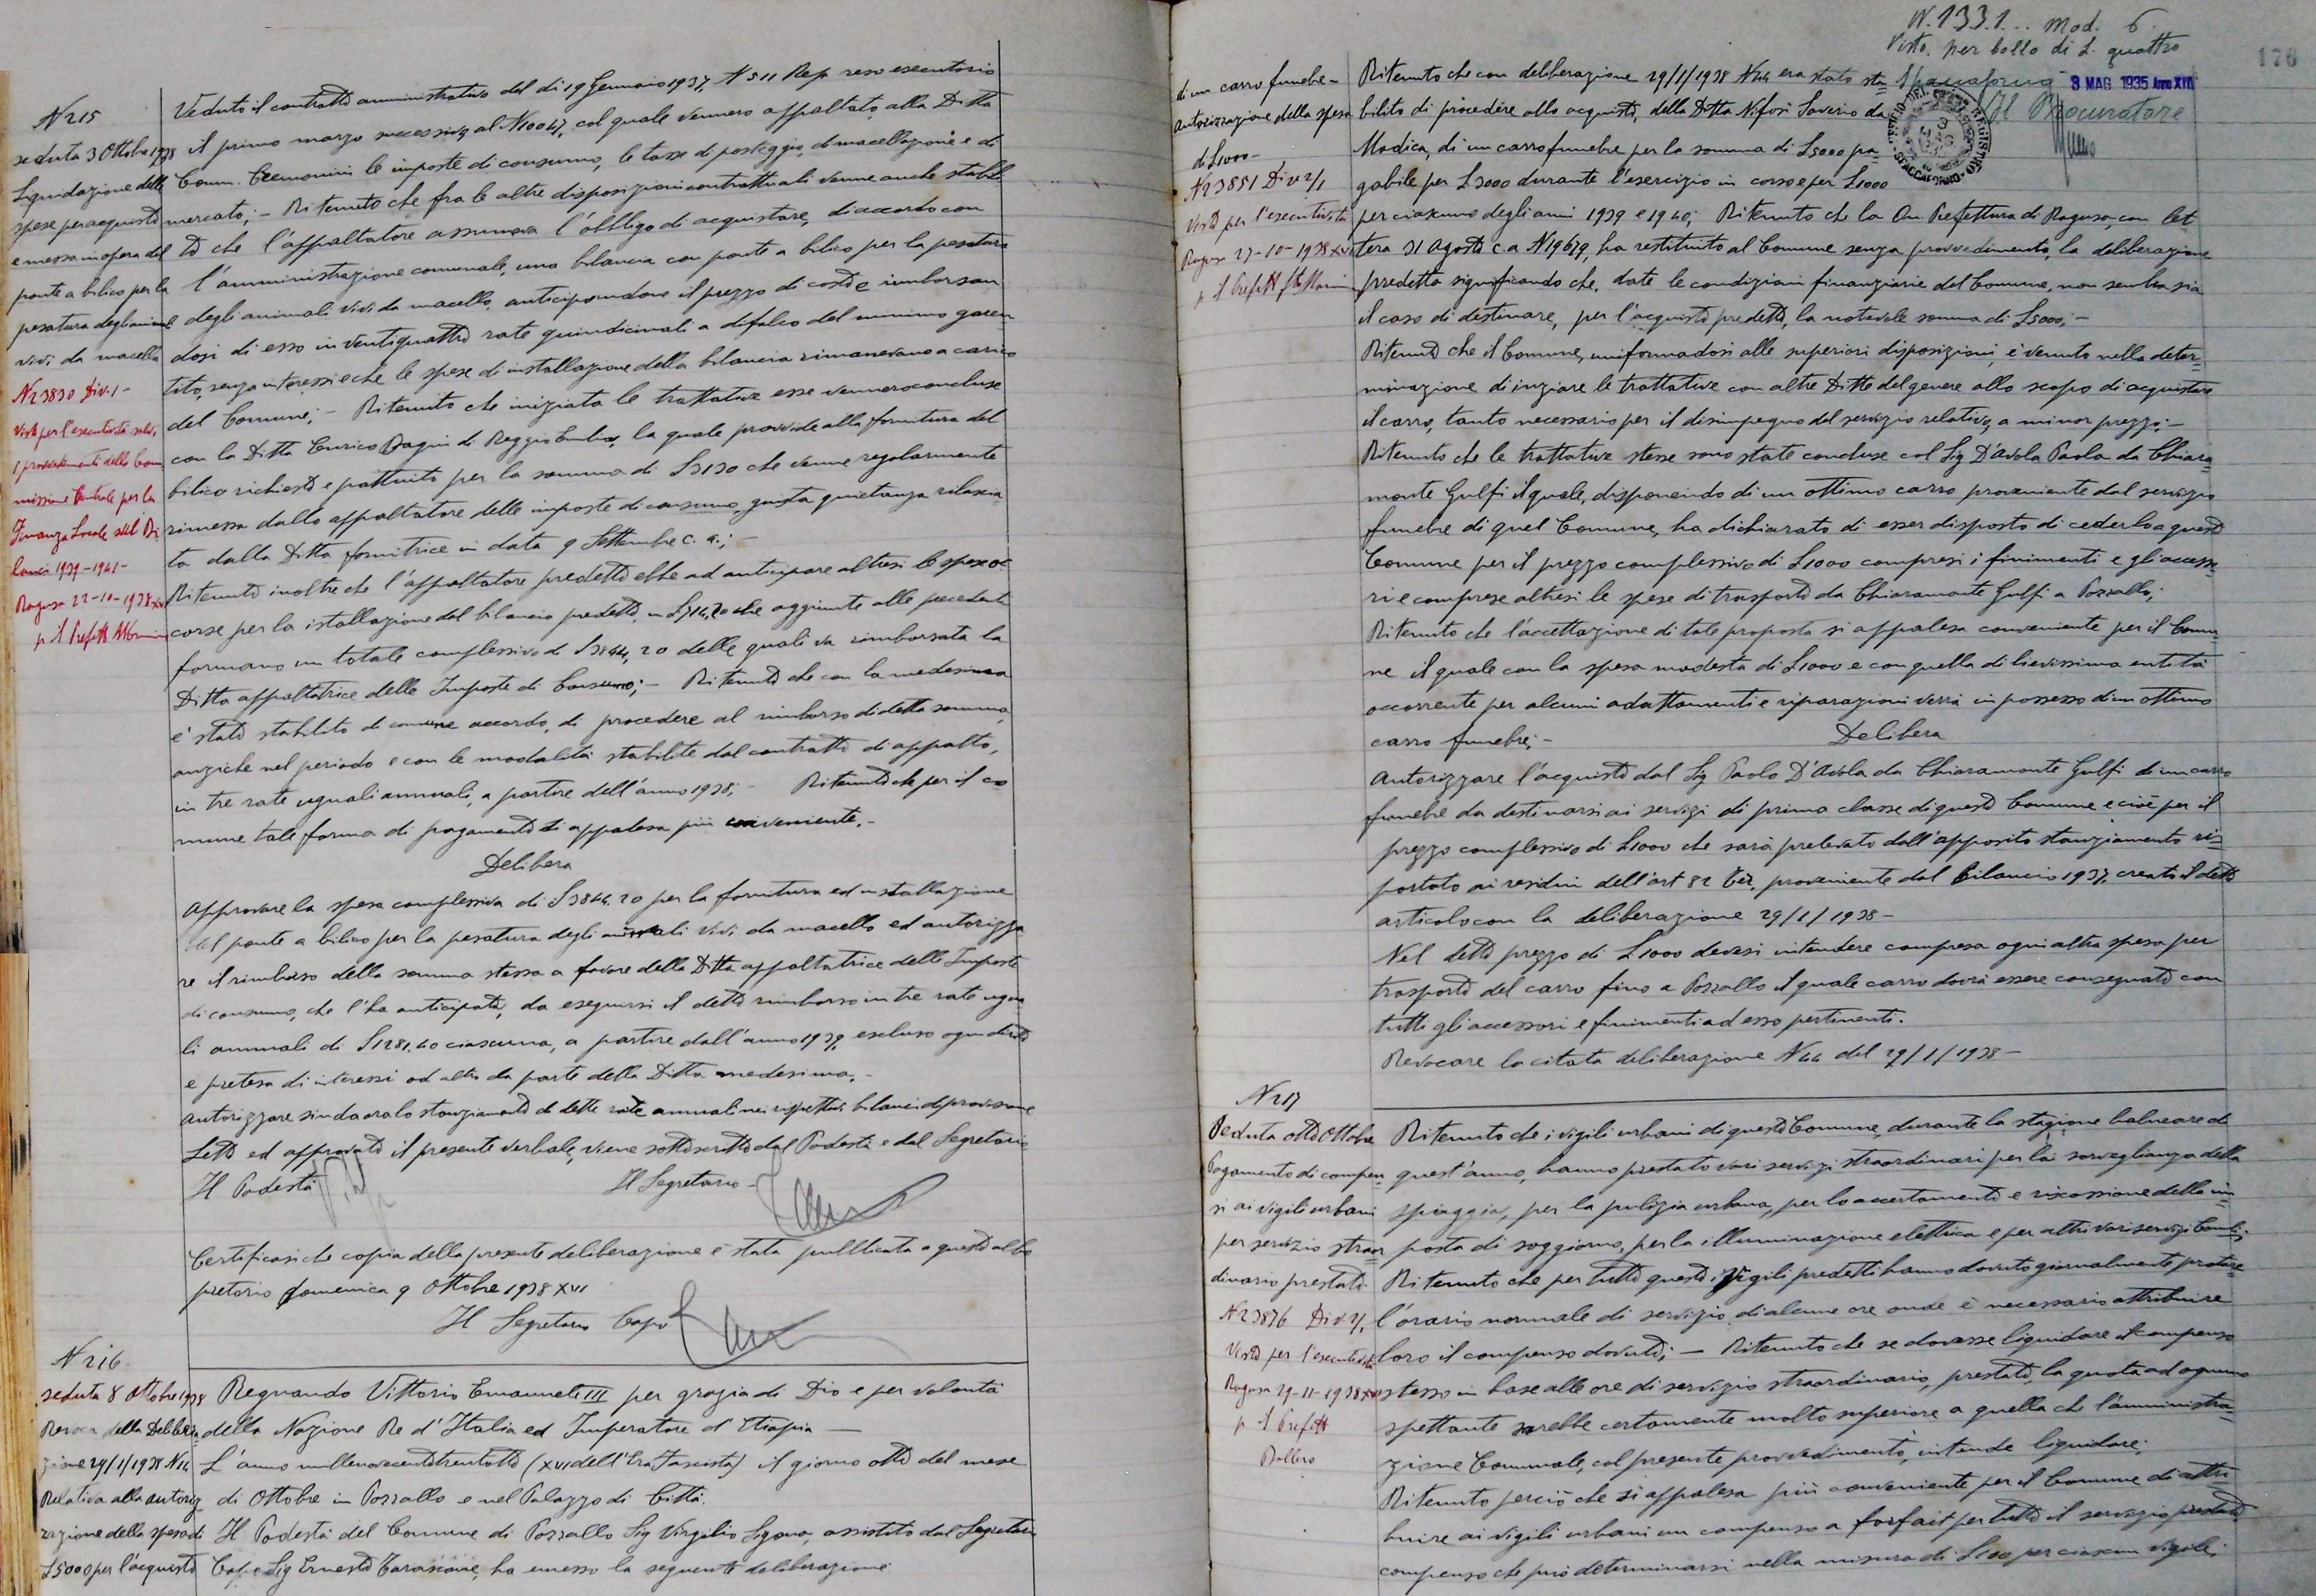 N 215
seduta 3 Ottobre 1938
Liquidazione delle
spese per acquisto
e messa in opera del
ponte a bilico per la
pesatura degli animali
vivi da macello
N 23830 Div. 1 -
Visto per l'esecutività salvi
i provvedimenti della Com
missione Centrale per la
Finanza Locale sul Bi
lancio 1939-1941 -
Ragusa 22-10-1938 XVI
p. il Prefetto
Veduto il contratto amministrativo del dì 19 Gennaio 1937, N 511 Rep reso esecutorio
il primo marzo successivo al N 10047, col quale vennero appaltato alla Ditta
Comm. Cremonini le imposte di consumo, le tasse di posteggio, di macellazione e di
mercato; - Ritenuto che fra le altre disposizioni contrattuali venne anche stabili
to che l'appaltatore assumeva l'obbligo di acquistare, di accordo con
l'amministrazione comunale, una bilancia con ponte a bilico per la pesatura
degli animali vivi da macello, anticipandone il prezzo di costo e rimborsan
dosi di esso in ventiquattro rate quindicinali a difalco del minimo garen
tito, senza interessi e che le spese di installazione della bilancia rimanevano a carico
del Comune; - Ritenuto che iniziata le trattative esse vennero concluse
con la Ditta Enrico Bagni di Reggio Emilia, la quale provvide alla fornitura del
bilico richiesto e pattuito per la somma di £ 3130 che venne regolarmente
rimessa dallo appaltatore delle imposte di consumo, giusta quietanza rilascia
ta dalla Ditta fornitrice in data 9 Settembre c. a.; -
Ritenuto inoltre che l'appaltatore predetto ebbe ad anticipare altresì le spese oc
corse per la istallazione del bilancio predetto, in £ 714,20 che aggiunte alle precedenti
formano un totale complessivo di £ 3844,20 delle quali va rimborsata la
Ditta appaltatrice delle Imposte di Consumo; - Ritenuto che con la medesima
è stato stabilito di comune accordo, di procedere al rimborso di detta somma,
anziche nel periodo e con le modalità stabilite dal contratto di appalto,
in tre rate uguali annuali, a partire dell'anno 1938; - Ritenuto che per il co
mune tale forma di pagamento si appalesa più conveniente. -
Delibera
Approvare la spesa complessiva di £ 3844.20 per la fornitura ed installazione
del ponte a bilico per la pesatura degli animali vivi da macello ed autorizza
re il rimborso della somma stessa a favore della Ditta appaltatrice delle Imposte
di consumo, che l'ha anticipata, da eseguirsi il detto rimborso in tre rate ugua
li annuali di £ 1281.40 ciascuna, a partire dall'anno 1939, escluso ogni diritto
e pretesa di interessi od altro da parte della Ditta medesima. -
Autorizzare sin da ora lo stanziamento di dette rate annuali nei rispettivi bilanci di previsione
Letto ed approvato il presente verbale, viene sottoscritto dal Podestà e dal Segretario
Il Podestà
Il Segretario -
Certificasi che copia della presente deliberazione è stata pubblicata a questo albo
pretorio domenica 9 Ottobre 1938 XVI
Il Segretario Capo
N 216.
seduta 8 Ottobre 1938
Revoca della Delibera
zione 29/1/1938 N 44
Relativa alla autoriz
zazione della spesa di
£ 5000 per l'acquisto
Regnando Vittorio Emanuele III per grazia di Dio e per volontà
della Nazione Re d'Italia ed Imperatore d'Etiopia -
L'anno millenovecentotrentotto (XVI dell'Era Fascista) il giorno otto del mese
di Ottobre in Pozzallo e nel Palazzo di Città.
Il Podestà del Comune di Pozzallo Sig Virgilio Sgana, assistito dal Segretario
Capo Sig Ernesto Tarascone, ha emesso la seguente deliberazione
N. 1331.. Mod. 6
Visto per bollo di £. quattro
Spaccaforno
3 MAG 1935 Anno XIII
Il Procuratore
176
di un carro funebre -
Autorizzazione della spesa
di £ 1000 -
N 23851 Div 2/1
Visto per l'esecutività
Ragusa 27-10-1938 XVI
p. il Prefetto
Ritenuto che con deliberazione 29/1/1938 N 44 era stato sta=
bilito di procedere allo acquisto, della Ditta Nifosì Saverio da
Modica, di un carro funebre per la somma di £ 5000 pa=
gabile per £ 3000 durante l'esercizio in corso e per £ 1000
per ciascuno degli anni 1939 e 1940; Ritenuto che la On. Prefettura di Ragusa, con let=
tera 31 Agosto c.a N 19679, ha restituito al Comune senza provvedimento, la deliberazione
predetta significando che, date le condizioni finanziarie del Comune, non sembra sia
il caso di destinare, per l'acquisto predetto, la notevole somma di £ 5000; -
Ritenuto che il Comune, uniformadosi alle superiori disposizioni, è venuto nella deter=
minazione di iniziare le trattative con altre Ditte del genere allo scopo di acquistare
il carro, tanto necessario per il disimpegno del servizio relativo, a minor prezzo; -
Ritenuto che le trattative stesse sono state concluse col Sig D'Avola Paolo da Chiara=
monte Gulfi il quale, disponendo di un ottimo carro proveniente dal servizio
funebre di quel Comune, ha dichiarato di esser disposto di cederlo a questo
Comune per il prezzo complessivo di £ 1000 compresi i finimenti e gli accesso=
ri e comprese altresì le spese di trasporto da Chiaramonte Gulfi a Pozzallo;
Ritenuto che l'accettazione di tale proposta si appalesa conveniente per il Comu=
ne il quale con la spesa modesta di £ 1000 e con quella di lievissima entità
occorrente per alcuni adattamenti e riparazioni verrà in possesso di un ottimo
carro funebre; -
Delibera
Autorizzare l'acquisto dal Sig Paolo D'Avola da Chiaramonte Gulfi di un carro
funebre da destinarsi ai servizi di prima classe di questo Comune e cioè per il
prezzo complessivo di £ 1000 che sarà prelevato dall'apposito stanziamento ri=
portato ai residui dell'art 82 ter, proveniente dal bilancio 1937, creato il detto
articolo con la deliberazione 29/1/1938 -
Nel detto prezzo di £ 1000 devesi intendere compresa ogni altra spesa per
trasporto del carro fino a Pozzallo il quale carro dovrà essere consegnato con
tutti gli accessori e finimenti ad esso pertinenti.
Revocare la citata deliberazione N 44 del 29/1/1938 -
N 217
Seduta otto Ottobre
Pagamento di compen=
si ai vigili urbani
per servizio straor
dinario prestato.
N 23876 Div. 2/1
Visto per l'esecutività
Ragusa 29-11-1938 XVII
p. il Prefetto
Ritenuto che i vigili urbani di questo Comune, durante la stagione balneare di
quest'anno, hanno prestato vari servizi straordinari per la sorveglianza della
spiaggia, per la pulizia urbana, per lo accertamento e riscossione della im=
posta di soggiorno, per la illuminazione elettrica e per altri vari servizi Comli;
Ritenuto che per tutto questo i vigili predetti hanno dovuto giornalmente protrarre
l'orario normale di servizio, di alcune ore onde è necessario attribuire
loro il compenso dovuto; - Ritenuto che se dovesse liquidare il compenso
stesso in base alle ore di servizio straordinario, prestato, la quota ad ognuno
spettante sarebbe certamente molto superiore a quella che l'amministra=
zione Comunale, col presente provvedimento, intende liquidare;
Ritenuto perciò che si appalesa più conveniente per il Comune di attri
buire ai vigili urbani un compenso a forfait per tutto il servizio prestato
compenso che può determinarsi nella misura di £ 100 per ciascun vigile;